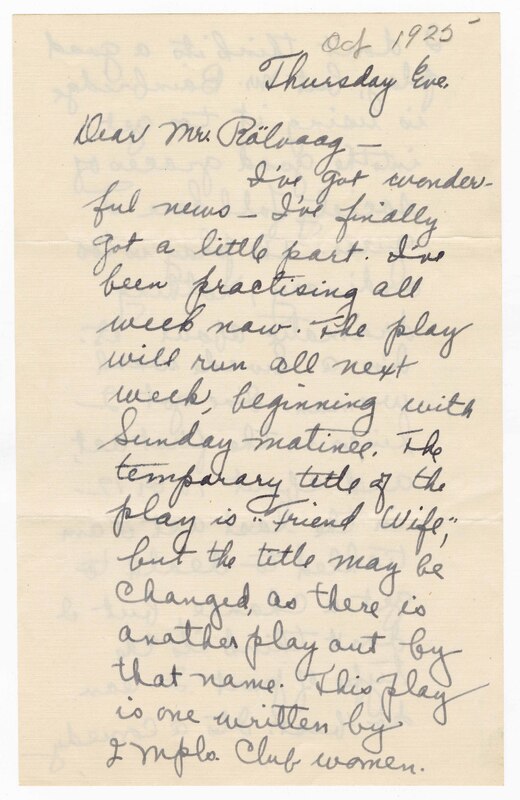 Oct 1925
Thursday Eve.
Dear Mr. Rölvaag —
I've got wonder-
ful news — I've finally
got a little part. I've
been practising all
week now. The play
will run all next
week, beginning with
Sunday matinee. The
temporary title of the
play is "Friend Wife",
but the title may be
changed, as there is
another play out by
that name. This play
is one written by
2 Mpls. Club women.